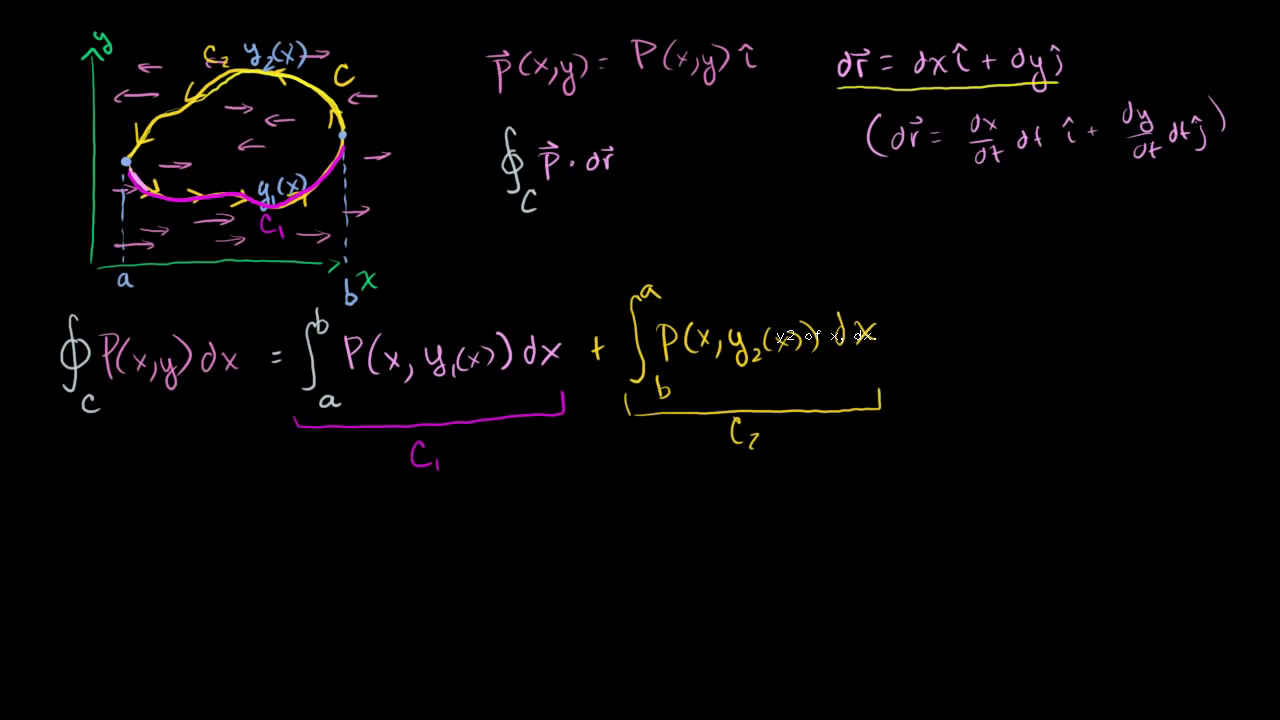 y
C₂ y₂(x)
C
y₁(x)
C₁
a
b
x
p⃗(x,y) = P(x,y) î
dr⃗ = dx î + dy ĵ
(dr⃗ = dx/dt dt î + dy/dt dt ĵ)
∮_C p⃗ · dr⃗
∮_C P(x,y) dx = ∫_a^b P(x, y₁(x)) dx + ∫_b^a P(x, y₂(x)) dx
y2 of x, dx.
C₁
C₂